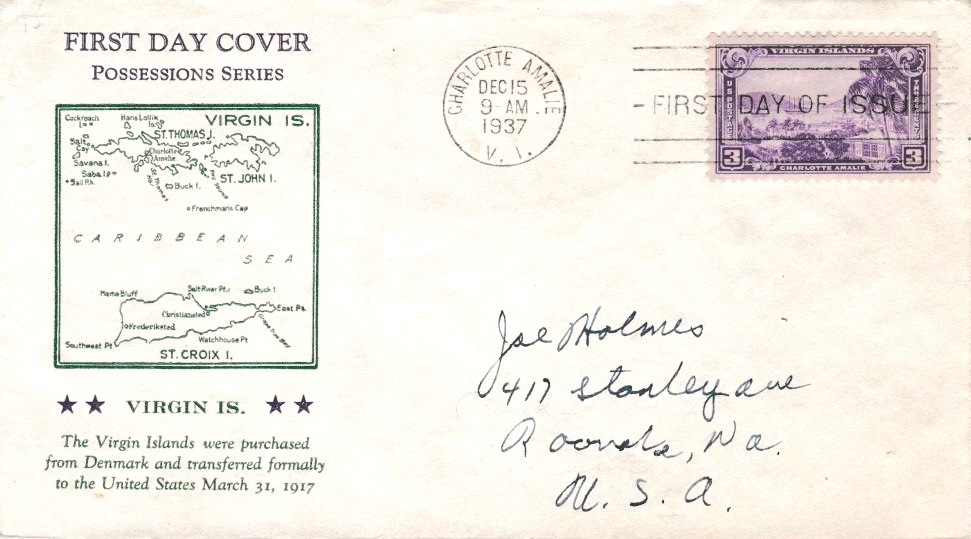 FIRST DAY COVER
POSSESSIONS SERIES
VIRGIN IS.
Cockroach I.
Hans Lollik Is.
ST. THOMAS I.
Salt Cay
Charlotte Amalie
Savana I.
Saba I.
ST. JOHN I.
Sail Rk.
Buck I.
Frenchmans Cap
CARIBBEAN
SEA
Hams Bluff
Salt River Pt.
Buck I.
Christiansted
East Pt.
Frederiksted
Southwest Pt
Watchhouse Pt
ST. CROIX I.
★★ VIRGIN IS. ★★
The Virgin Islands were purchased
from Denmark and transferred formally
to the United States March 31, 1917
CHARLOTTE AMALIE
DEC 15
9-AM
1937
V. I.
FIRST DAY OF ISSUE
VIRGIN ISLANDS
US POSTAGE
3
3
CHARLOTTE AMALIE
Joe Holmes
417 Stanley ave
Roanoke, Va.
U. S. A.